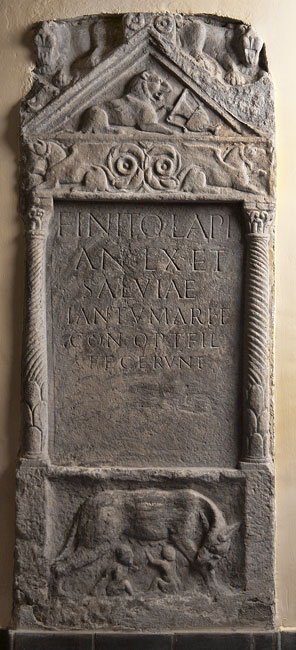 FINITO LAPI
AN LXET
SALVIAE
IANTVMARI F
CON OPT FIL
F F CERVNT